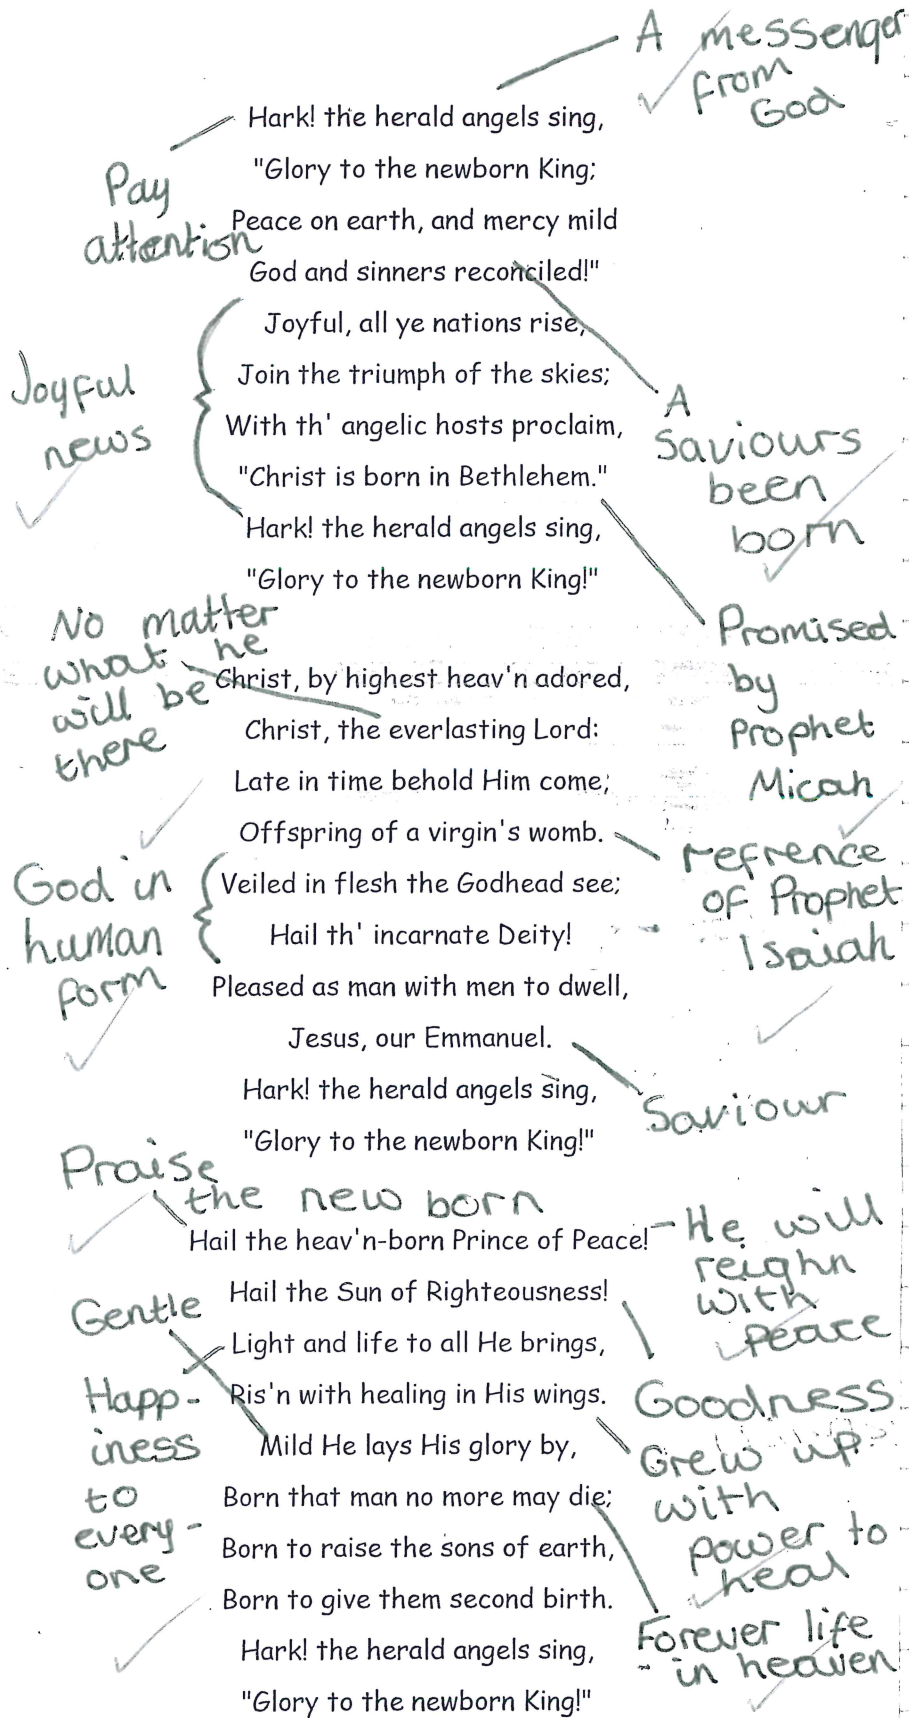 A messenger
from
God
Hark! the herald angels sing,
"Glory to the newborn King;
Pay
attention
Peace on earth, and mercy mild
God and sinners reconciled!"
Joyful, all ye nations rise,
Join the triumph of the skies;
With th' angelic hosts proclaim,
"Christ is born in Bethlehem."
Hark! the herald angels sing,
"Glory to the newborn King!"
Joyful
news
A
Saviours
been
born
Promised
by
Prophet
Micah
No matter
what he
will be
there
Christ, by highest heav'n adored,
Christ, the everlasting Lord:
Late in time behold Him come;
Offspring of a virgin's womb.
Veiled in flesh the Godhead see;
Hail th' incarnate Deity!
Pleased as man with men to dwell,
Jesus, our Emmanuel.
Hark! the herald angels sing,
"Glory to the newborn King!"
refrence
of Prophet
Isaiah
God in
human
form
Saviour
Praise
the new born
Hail the heav'n-born Prince of Peace!
Hail the Sun of Righteousness!
Light and life to all He brings,
Ris'n with healing in His wings.
Mild He lays His glory by,
Born that man no more may die;
Born to raise the sons of earth,
Born to give them second birth.
Hark! the herald angels sing,
"Glory to the newborn King!"
He will
reighn
with
peace
Gentle
Happ-
iness
to
every-
one
Goodness
Grew up
with
power to
heal
Forever life
in heaven